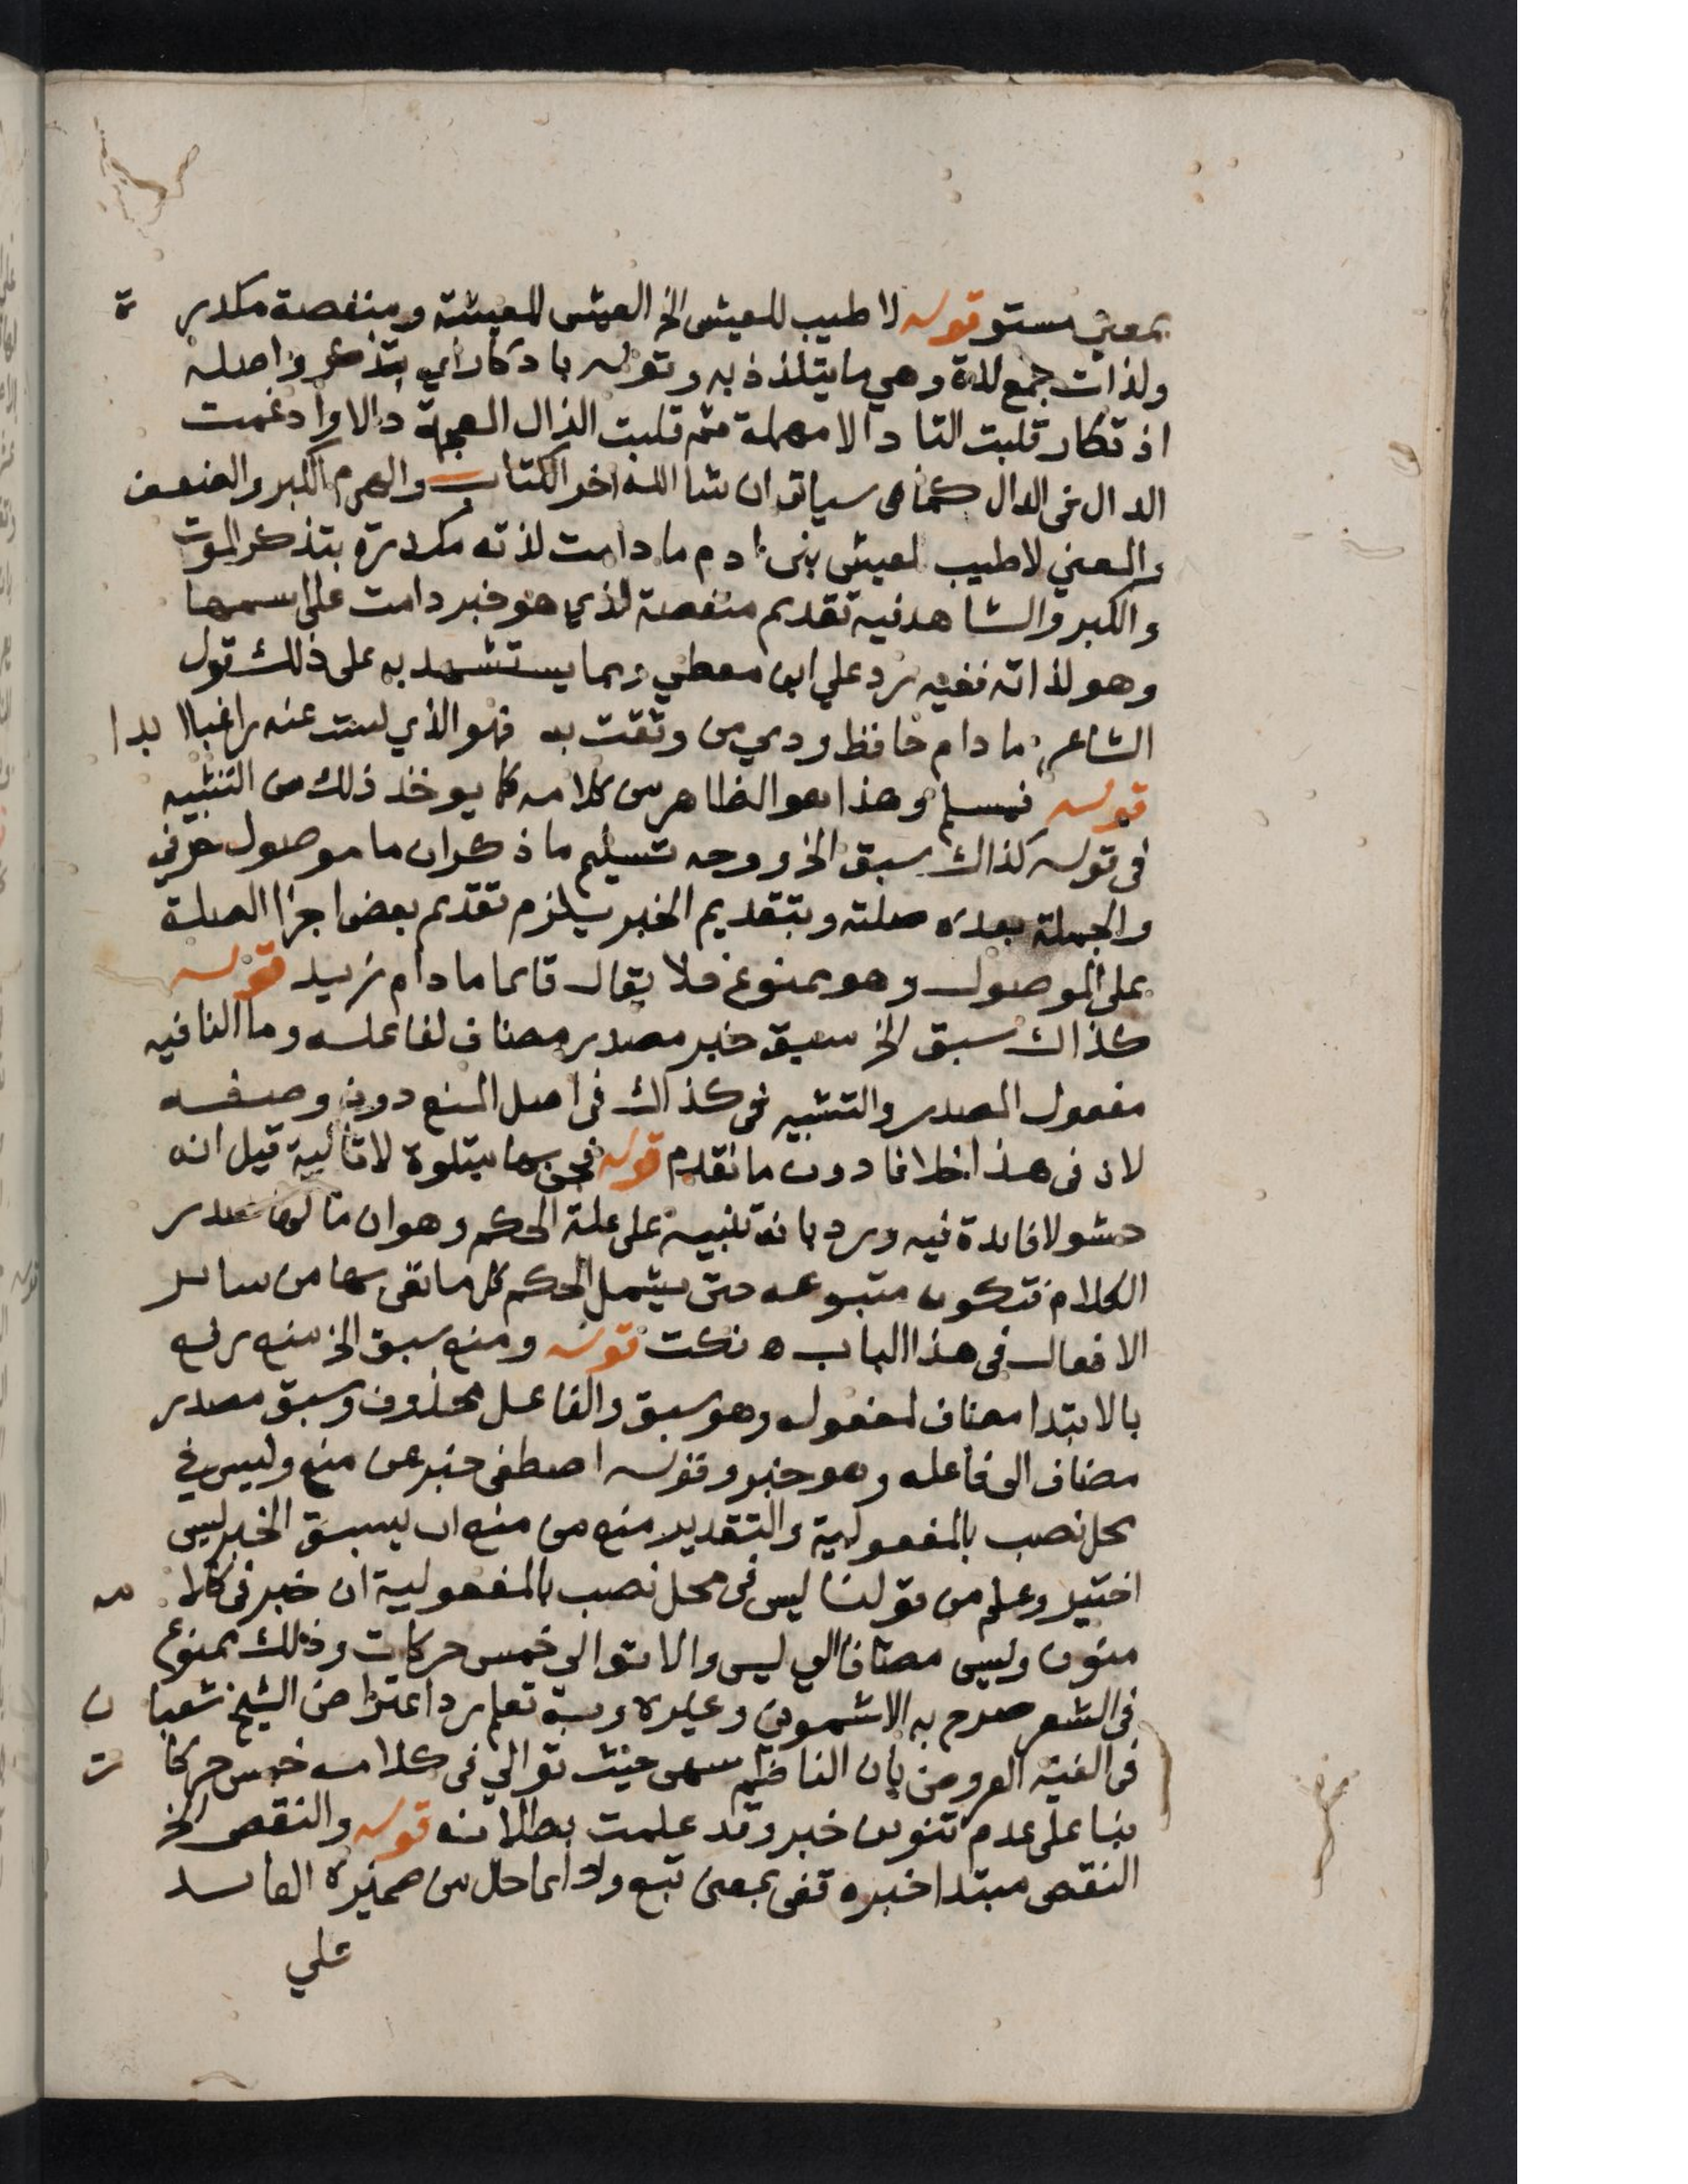 بمعني مستو قوله لا طيب للعيش الخ العيش المعيشة ومنغصة مكدر ة
ولذات جمع لذة وهي ما يتلذذ به وقوله بادكار اي بتذكر واصله
اذتكار قلبت التا دالا مهملة ثم قلبت الذال المعجمة دالا وادغمت
الدال في الدال كما سياتي ان شا الله اخر الكتاب والهرم الكبر والضعف
والمعني لا طيب لعيش بني ادم ما دامت لذته مكدرة بتذكر الموت
والكبر والشاهد فيه تقديم منغصة الذي هو خبر دامت على اسمها
وهو لذاته ففيه رد علي ابن معطي ومما يستشهد به على ذلك قول
الشاعر ما دام حافظ ودي من وثقت به فهو الذي لست عنه راغبا ابدا
قوله فمسلم وهذا هو الظاهر من كلامه كما يوخذ ذلك من التشبيه
في قوله كذاك سبق الخ ووجه تسليم ما ذكر ان ما موصول حرفي
والجملة بعده صلته وبتقديم الخبر يلزم تقديم بعض اجزا الصلة
على الموصول وهو ممنوع فلا يقال قايما ما دام زيد قوله
كذاك سبق الخ سبق خبر مصدر مضاف لفاعله وما النافيه
مفعول المصدر والتشبيه في كذاك في اصل المنع دون وصفه
لان في هذا خلافا دون ما تقدم قوله فجي بها متلوة لا تالية قيل انه
حشو لا فايدة فيه ورد بانه تنبيه على علة الحكم وهو ان ما لها صدر
الكلام فتكون متبوعه حتى يشمل الحكم كل ما نفي بها من ساير
الافعال في هذا الباب ه نكت قوله ومنع سبق الخ منع رفع
بالابتدا مضاف لمفعوله وهو سبق والفاعل محذوف وسبق مصدر
مضاف الى فاعله وهو خبر وقوله اصطفى خبر عن منع وليس في
محل نصب بالمفعولية والتقدير منع من منع ان يسبق الخبر ليس
اختير وعلم من قولنا ليس في محل نصب بالمفعولية ان خبر في كلا مه
منون وليس مضافا الي ليس والا توالي خمس حركات وذلك ممنوع
في الشعر صرح به الاشموني وغيره وبه تعلم رد اعتراض الشيخ شعبا ن
في الفيته العروض بان الناظم سهى حيث توالي في كلامه خمس حركا ت
بنا على عدم تنوين خبر وقد علمت بطلانه قوله والنقص الخ
النقص مبتدا خبره قفى بمعنى تبع ودايما حال من ضميره العايد
علي